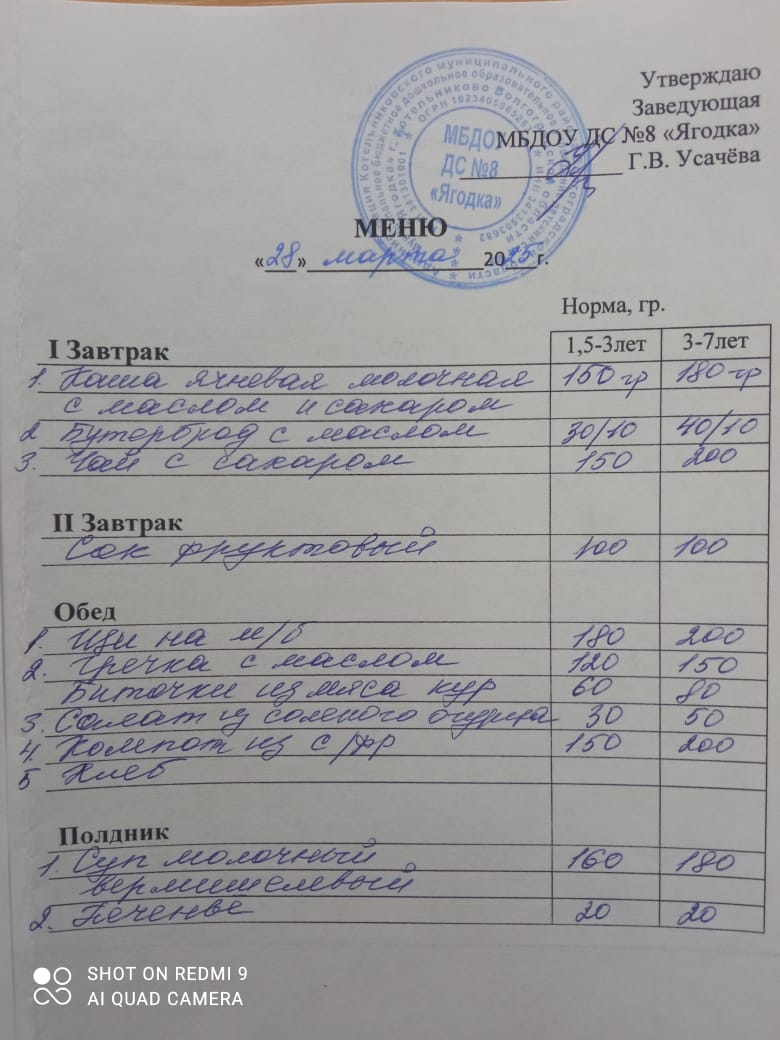 Утверждаю
Заведующая
МБДОУ ДС №8 «Ягодка»
Г.В. Усачёва
МБДОУ
ДС №8
«Ягодка»
МЕНЮ
«28» марта 2025 г.
Норма, гр.
I Завтрак 1,5-3лет 3-7лет
1. Каша ячневая молочная 150 гр 180 гр
с маслом и сахаром
2 Бутерброд с маслом 30/10 40/10
3. Чай с сахаром 150 200
II Завтрак
Сок фруктовый 100 100
Обед
1. Щи на м/б 180 200
2. Гречка с маслом 120 150
Биточки из мяса кур 60 80
3. Салат из соленого огурца 30 50
4. Компот из с/фр 150 200
5 Хлеб
Полдник
1. Суп молочный 160 180
вермишелевый
2. Печенье 20 20
SHOT ON REDMI 9
AI QUAD CAMERA